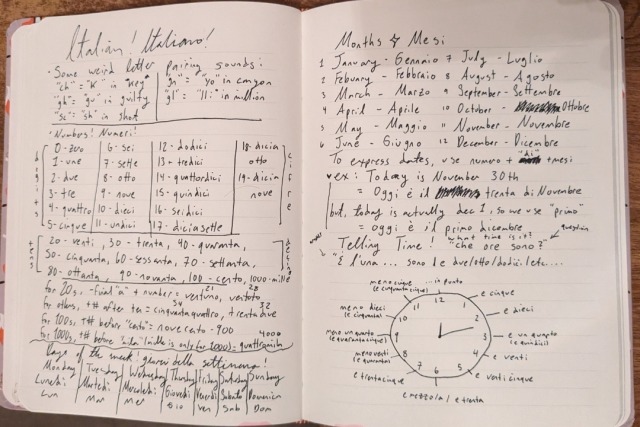 Italian! Italiano!
• Some weird letter pairing sounds:
"ch" = "k" in "key"
"gh" = "gu" in guilty
"sc" = "sh" in shot
"gn" = "yo" in canyon
"gl" = "lli" in million
Numbers! Numeri!
digits
cifre
0 - zero
1 - une
2 - due
3 - tre
4 - quattro
5 - cinque
6 - sei
7 - sette
8 - otto
9 - nove
10 - dieci
11 - undici
12 - dodici
13 - tredici
14 - quattordici
15 - quindici
16 - seidici
17 - diciasette
18 - dicia
otto
19 - dicia
nove
tens
20 - venti, 30 - trenta, 40 - quaranta,
50 - cinquanta, 60 - sessanta, 70 - settanta,
80 - ottanta, 90 - novanta, 100 - cento, 1000 - mille
for 20s, - final "a" + number = ventuno, ventotto
21 28
for others, + # after ten = cinquantaquattro, trentadue
54 32
for 100s, + # before "cento" = nove cento - 900
for 1000s, + # before "mila" (mille is only for 1000) = quattromila
4000
Days of the week! giorni della settimana!
Monday Tuesday Wednesday Thursday Friday Saturday Sunday
Lunedi Martedi Mercoledi Giovedi Venerdi Sabato Domenica
Lun Mar Mer Gio Ven Sab Dom
Months & Mesi
1 January - Gennaio 7 July - Luglio
2 Febuary - Febbraio 8 August - Agosto
3 March - Marzo 9 September - Settembre
4 April - Aprile 10 October - Ottobre
5 May - Maggio 11 November - Novembre
6 June - Giugno 12 December - Dicembre
To express dates, use number + "di" + mesi
ex: Today is November 30th
= Oggi è il trenta di Novembre
but, today is actually dec 1, so we use "primo"
= oggi è il primo dicembre
Telling Time! "che ore sono?"
what time is it?
question
"È l'una... sono le due/otto/dodici. etc...
meno cinque
(e cinquantacinque)
...in punto
e cinque
meno dieci
(e cinquanta)
e dieci
meno un quarto
(e quarantacinque)
e un quarto
(e quindici)
meno venti
(e quaranta)
e venti
e trentacinque
e venticinque
e mezzo/a / e trenta
12
1
2
3
4
5
6
7
8
9
10
11